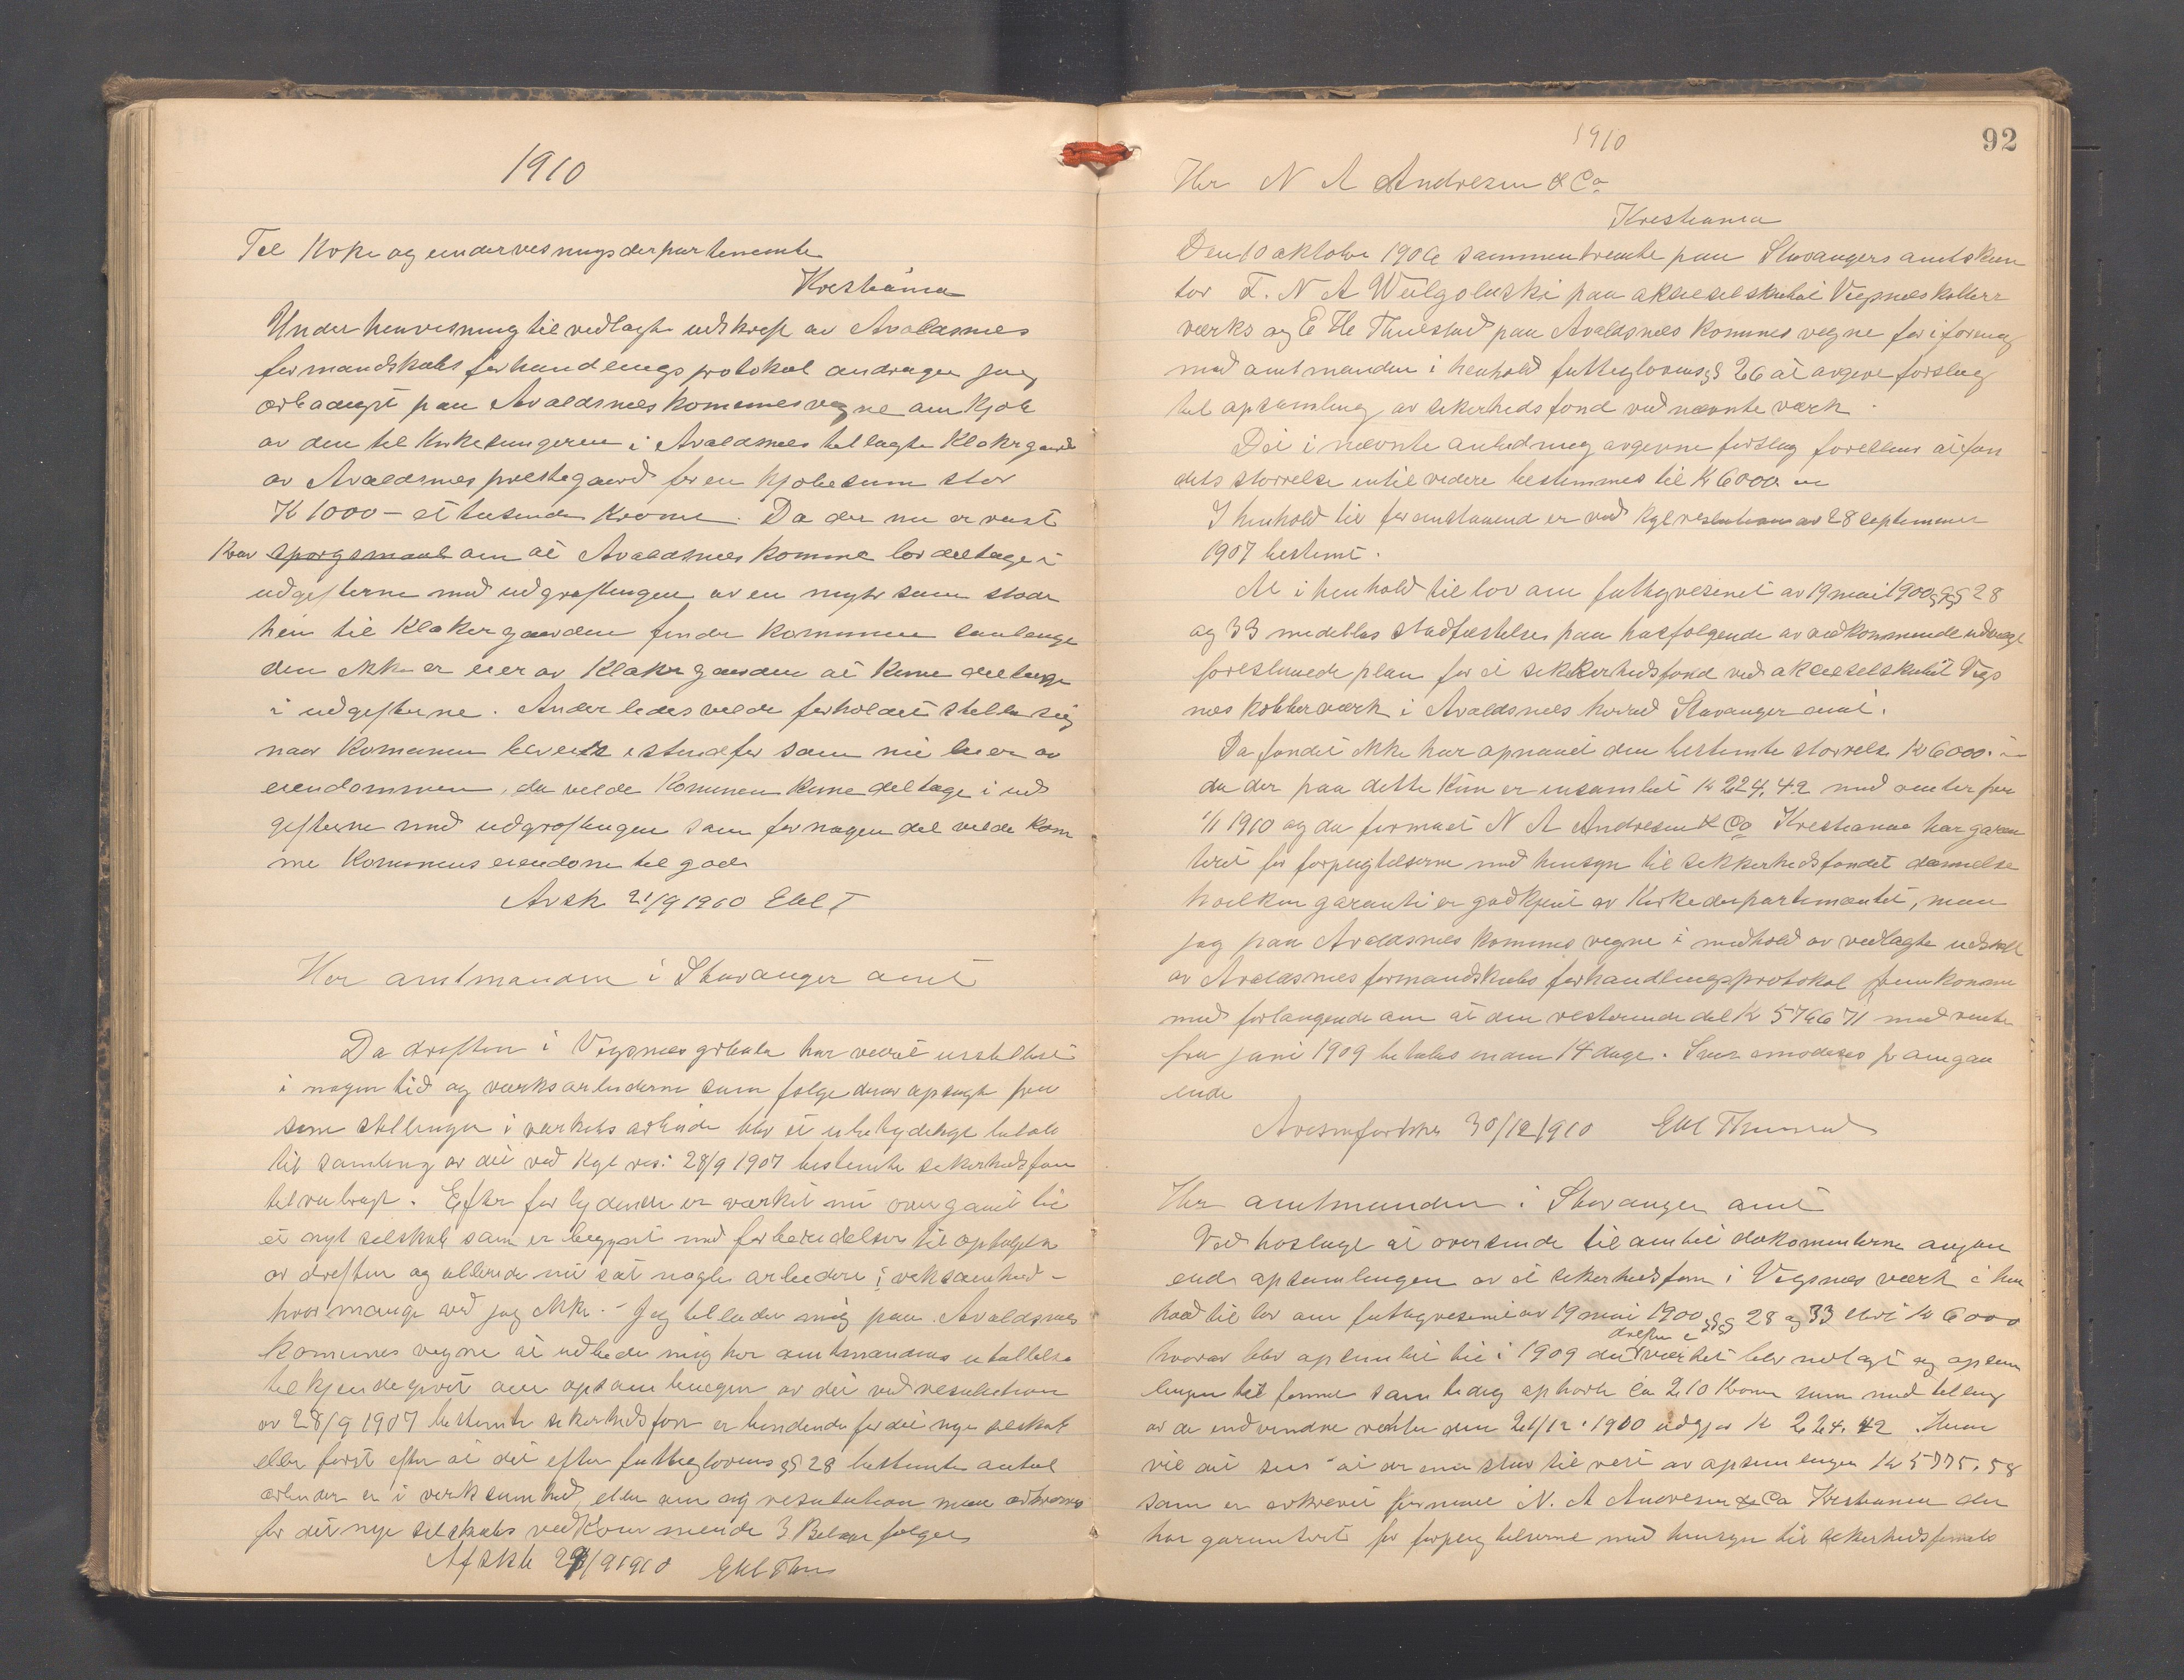 1910
Til Kirke og undervisningsdepartemente
Kristiania
Under henvisning til vedlagte udskrift av Avaldsnes
formandskabs forhandlings protokol andrager jeg
ærbødigst paa Avaldsnes kommunes vegne om kjøb
av den til Kirkesangeren i Avaldsnes tillagte Klokkergaard
av Avaldsnes prestegaard for en kjøbesum stor
K 1000 – et tusende Kroner. Da der nu er reist
krav spørgsmaal om at Avaldsnes komune bør deltage i
udgifterne med udgrøftingen av en myr som støder
hen til Klokergaarden finder kommunen saalænge
den ikke er eier av Klokergaarden at kunne deltage
i udgifterne. Anderledes vilde forholdet stille sig
naar Komunen blev eier istedetfor som nu leier av
eiendommen, da vilde Komunen kunne deltage i ud
gifterne med udgrøftingen som for nogen del vilde kom
me Komunens eiendom til gode
Avsk 21/9 1910 EHT
Her amtmanden i Stavanger amt
Da driften i Vigsnes grube har været instillet
i nogen tid og verksarbeiderne som følge derav opsagt fra
sine stillinger i verkets arbeide blev et ubetydeligt beløb
til samling av det ved Kgl res: 28/9 1907 bestemte sikerhedsfon
tilveibragt. Efter forlydende er verket nu overgaaet til
et nyt selskab som er begynt med forberedelser til optagelse
av driften og allerede nu sat nogle arbeidere i virksomhed –
hvor mange ved jeg ikke. – Jeg tillader mig paa Avaldsnes
komunes vegne at udbede mig her amtmandens utallelse
tilkjendegivet om opsamlingen av det ved resolution
av 28/9 1907 bestemte sikerhedsfon er bindende for det nye selskab
eller først efter at det efter fattiglovens §§ 28 bestemte antal
arbeider er i virksomhed, eller om ny resolution maa erhverves
for det nye selskabs vedkommende 3 Bilage følger
Afskr 29/9 1910 EHThu
92
1910
Her N A Andresen & Co
Kristiania
Den 10 oktober 1906 sammentraadte paa Stavangers amtskon
tor F. N A Wülgoluski paa aktieselskabet Vigsnes kobber
værks og E He Thuestad paa Avaldsnes Komunes vegne for i forening
med amtmanden i henhold fattiglovens §§ 26 at avgive forslag
til opsamling av sikerhedsfond ved nævnte værk.
Det i nævnte anledning avgivne forslag foreslaar at fon
dets størrelse intil videre bestemmes til K 6000 –
I henhold til foranstaaend er ved kgl resolution av 28 september
1907 bestemt.
At i henhold til lov om fattigvesenet av 19 mai 1900 §§ 28
og 33 meddeles stadfæstelse paa hosfølgende av vedkommende udvalg
foreslaaede plan for et sikkerhedsfond ved aktieselskabet Vigs
nes kobberværk i Avaldsnes herred Stavanger amt.
Da fondet ikke har opnaaet den bestemte størrelse K 6000. –
da der paa dette kun er insamlet K 224,42 med renter før
1/1 1910 og da firmaet N A Andresen & Co Kristiania har garan
teret for forpligtelserne med hensyn til sikkerhedsfondet dannelse
hvilken garanti er godkjent av Kirkedepartementet, maa
jeg paa Avaldsnes komunes vegne i medhold av vedlagte udskrift
av Avaldsnes formandskabs forhandlingsprotokol fremkomme
med forlangende om at den resterende del K 5766 71 med rente
fra juni 1909 betales inden 14 dage. Svar imødeses pr omgaa
ende
Avaldsnes 30/12 1910 EHe Thuestad
Her amtmanden i Stavanger amt
Ved hoslagt at oversende til amtet dokumenterne angaa
ende opsamlingen av et sikerhedsfon i Vigsnes værk i hen
hold til lov om fattigvesenet av 19 mai 1900 §§ 28 og 33 K 6000
driften i
hvorav blev opsamlet til i 1909 da værket blev nedlagt og opsam
lingen til fonnet samtidig ophørte ca 210 Kroner som med tillæg
av de indvundne renter den 26/12 1910 udgjør K 224,42. Herr
vil amt sees at der enu staar til rest av opsamlingen K 5775.58
som er avkrevet firmaet N. A Andresen & Co Kristiania der
har garantert for forpligtelserne med hensyn til sikerhedsfonnets